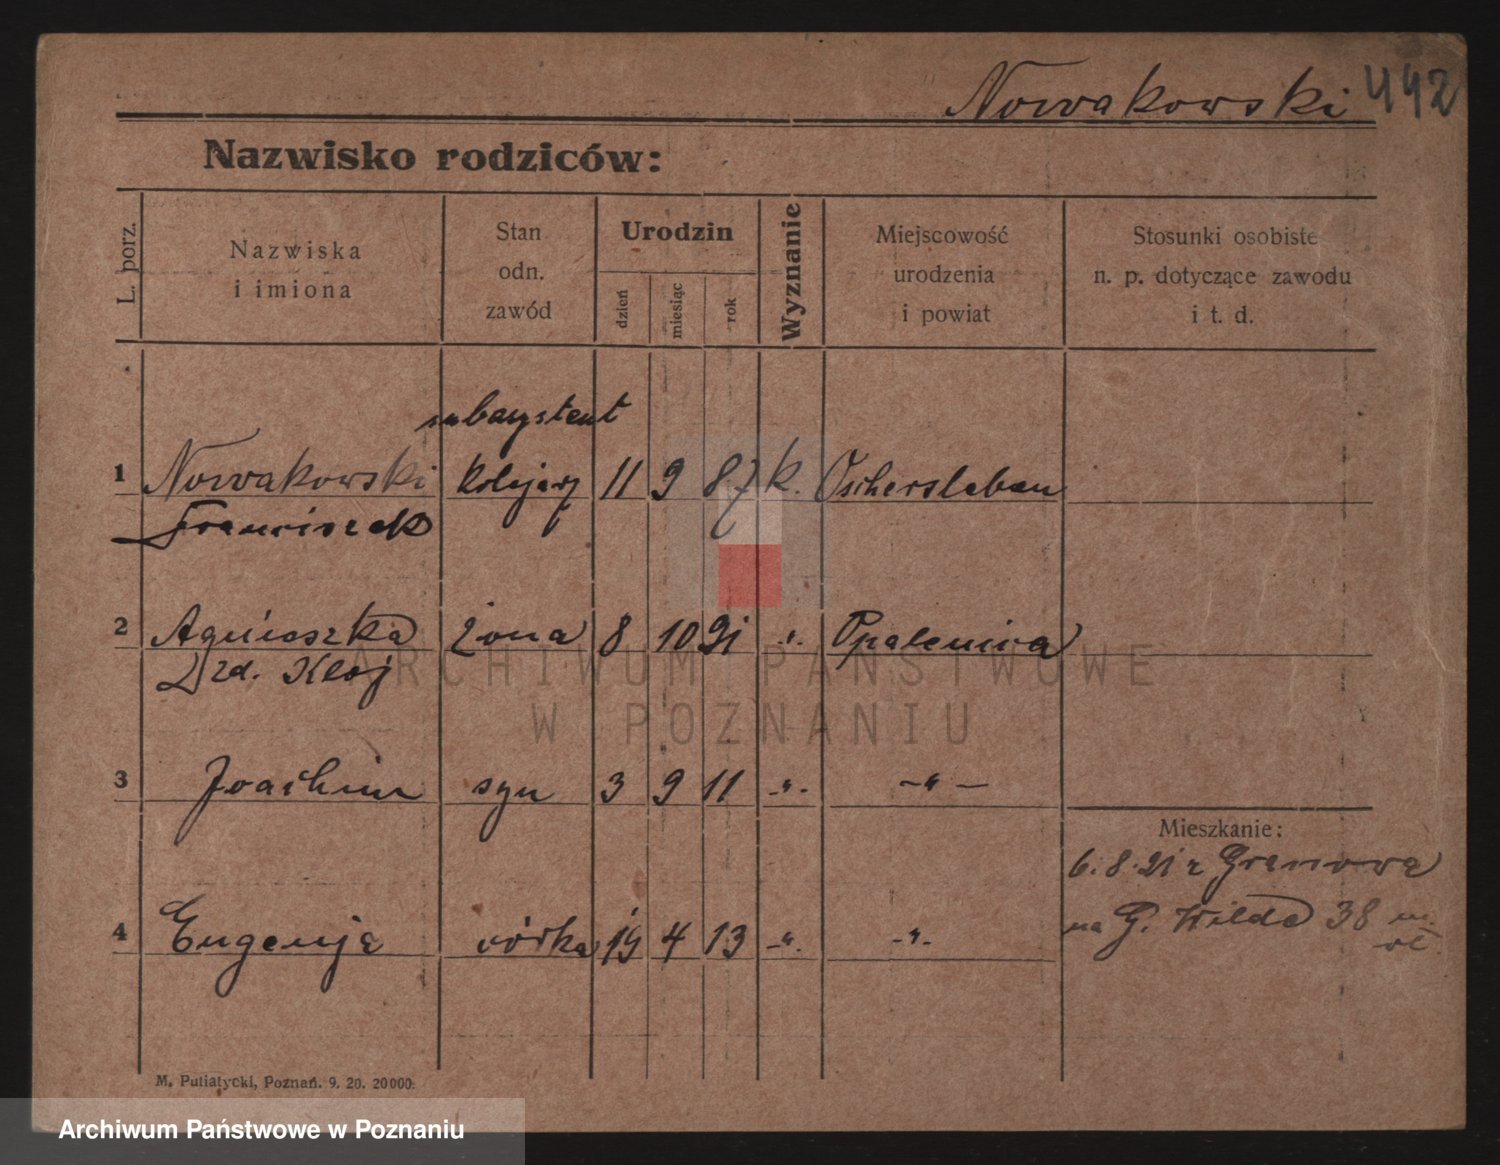 Nowakowski 442
Nazwisko rodziców:
L. porz.
Nazwiska
i imiona
Stan
odn.
zawód
Urodzin
dzień
miesiąc
rok
Wyznanie
Miejscowość
urodzenia
i powiat
Stosunki osobiste
n. p. dotyczące zawodu
i t. d.
subasystent
1 Nowakowski kolejarz 11 9 87 k. Oschersleben
Franciszek
2 Agnieszka żona 8 10 91 -"- Opalenica
zd. Kłoj
3 Joachim syn 3 9 11 -"- -"-
Mieszkanie:
6.8.21 z Granowa
4 Eugenja córka 19 4 13 -"- -"-
na G. Wilda 38
M. Putiatycki, Poznań. 9. 20. 20000.
ARCHIWUM PAŃSTWOWE
W POZNANIU
Archiwum Państwowe w Poznaniu